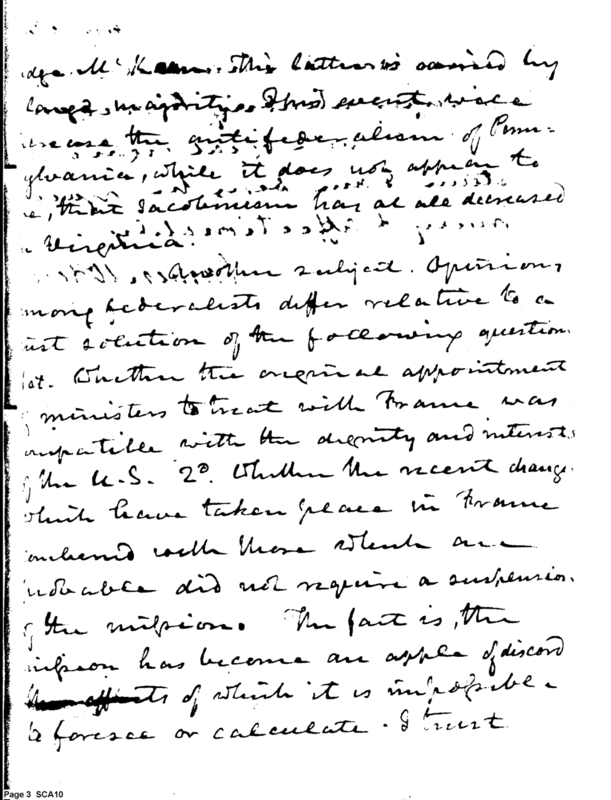 dge McKean. This latter is carried by
large majority. This event will
crease the antifederalism of Penn-
ylvania, while it does not appear to
e, that Jacobinism has at all decreased
n Virginia.
Another subject. Opinions
mong federalists differ relative to a
ust solution of the following question.
1st. Whether the original appointment
f ministers to treat with France was
ompatible with the dignity and interests
of the U.S. 2d. Whether the recent change
which have taken place in France
ombined with those which are
robable did not require a suspension
of the mission. The fact is, the
mission has become an apple of discord
effects of which it is impossible
to foresee or calculate. I trust
Page 3 SCA10